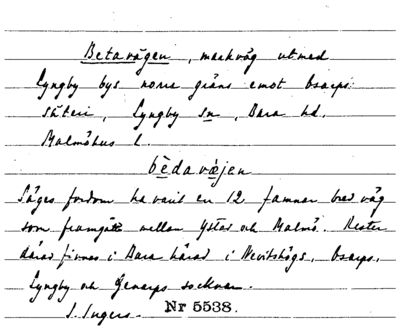 Betavägen, markväg utmed
Lyngby bys norra gräns emot Esarps
säteri, Lyngby sn, Bara hd.
Malmöhus l.
bèdavæjen
Säges fordom ha varit en 12 famnar bred väg
som framgått mellan Ystad och Malmö. Rester
därav finnes i Bara härad i Nevitshögs, Esarps,
Lyngby och Genarps socknar.
I. Ingers. Nr 5538.